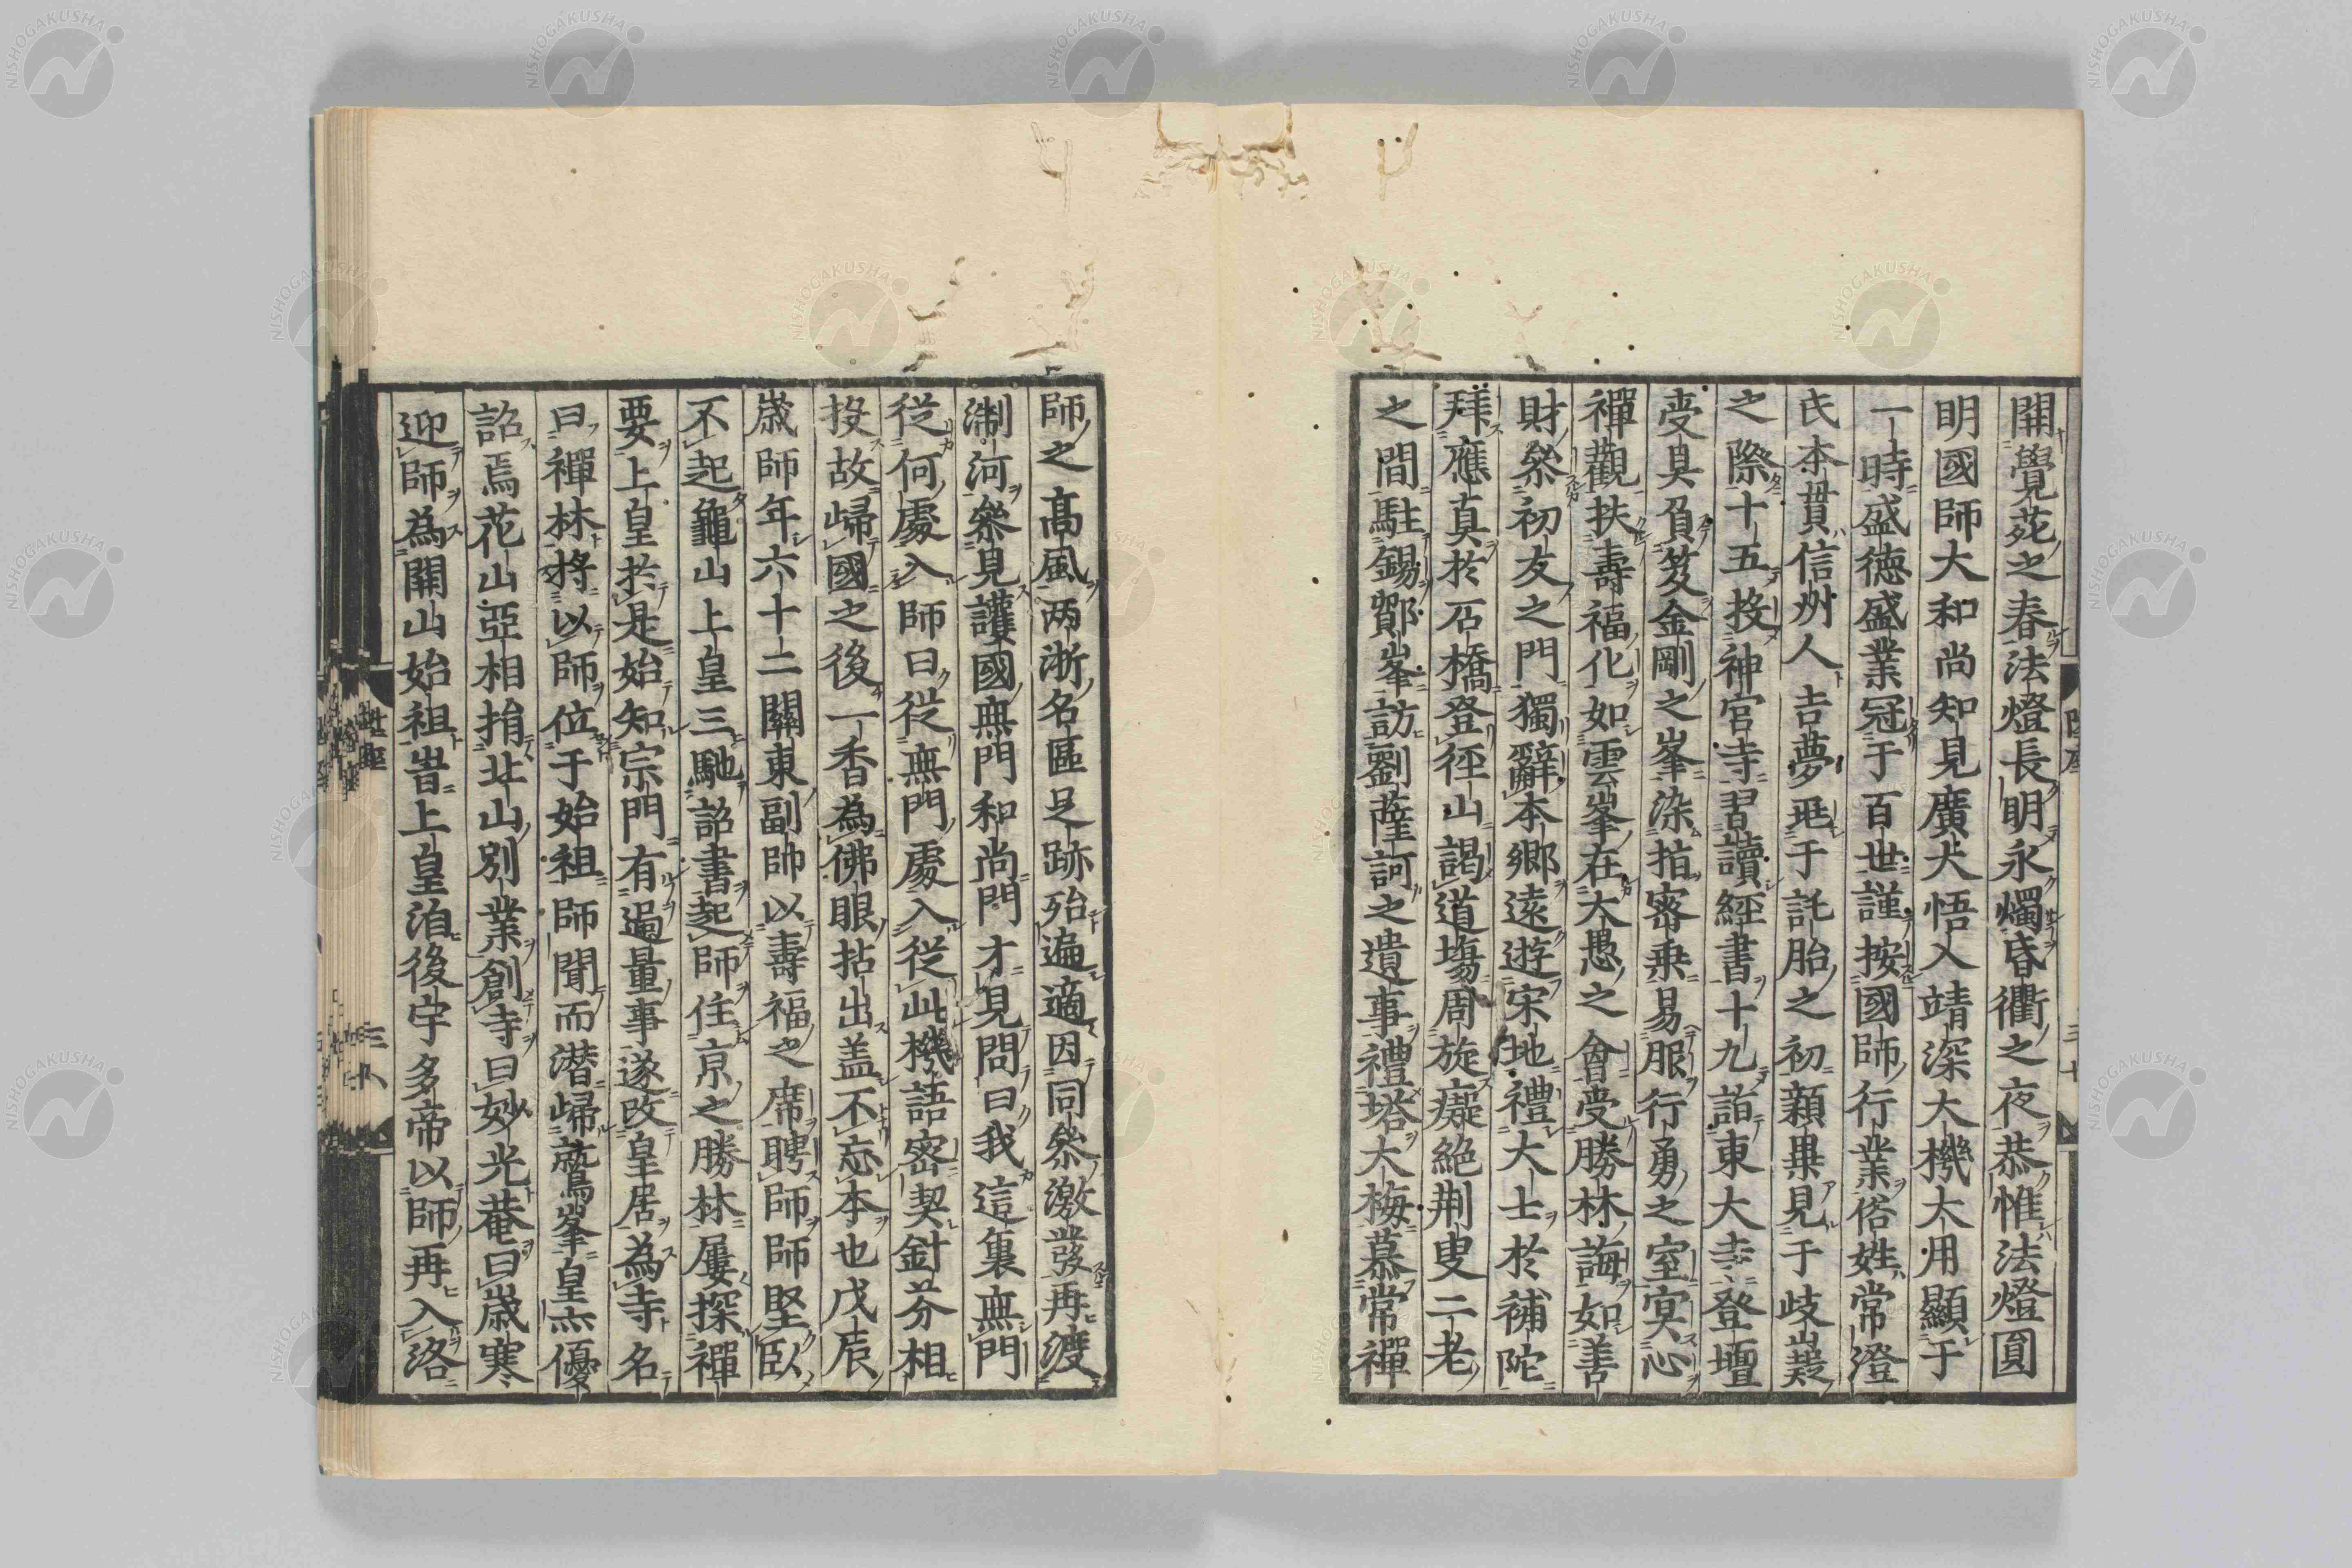 開覺苑之春法燈長明永燭昏衢之夜恭惟法燈圓
明國師大和尚知見廣大悟入靖深大機大用顯于
一時盛徳盛業冠于百世謹按國師行業俗姓常澄
氏本貫信州人吉夢兆于託胎之初穎異見于岐嶷
之際十五投神宮寺習讀經書十九詣東大寺登壇
受具負笈金剛之峯染指密乗易服行勇之室冥心
禪觀扶壽福化如雲峯在大愚之會受勝林誨如善
財叅初友之門獨辭本郷遠遊宋地禮大士於補陀
拜應真於石橋登徑山謁道塲周旋癡絶荆叟二老
之間駐錫鄮峯訪劉薩訶之遺事禮塔大梅慕常禪
師之高風两浙名區足跡殆遍適因同叅激發再渡
淛河叅見護國無門和尚門才見問曰我這裏無門
從何處入師曰從無門處入從此機語密契針芥相
投故歸國之後一香為佛眼拈出盖不忘本也戊辰
歲師年六十二關東副帥以壽福之席聘師師堅臥
不起龜山上皇三馳詔書起師住京之勝林屢探禪
要上皇於是始知宗門有過量事遂改皇居為寺名
曰禪林將以師位于始祖師聞而潜歸鷲峯皇亦優
詔焉花山亞相捐北山別業創寺曰妙光菴曰歲寒
迎師為開山始祖昔上皇洎後宇多帝以師再入洛